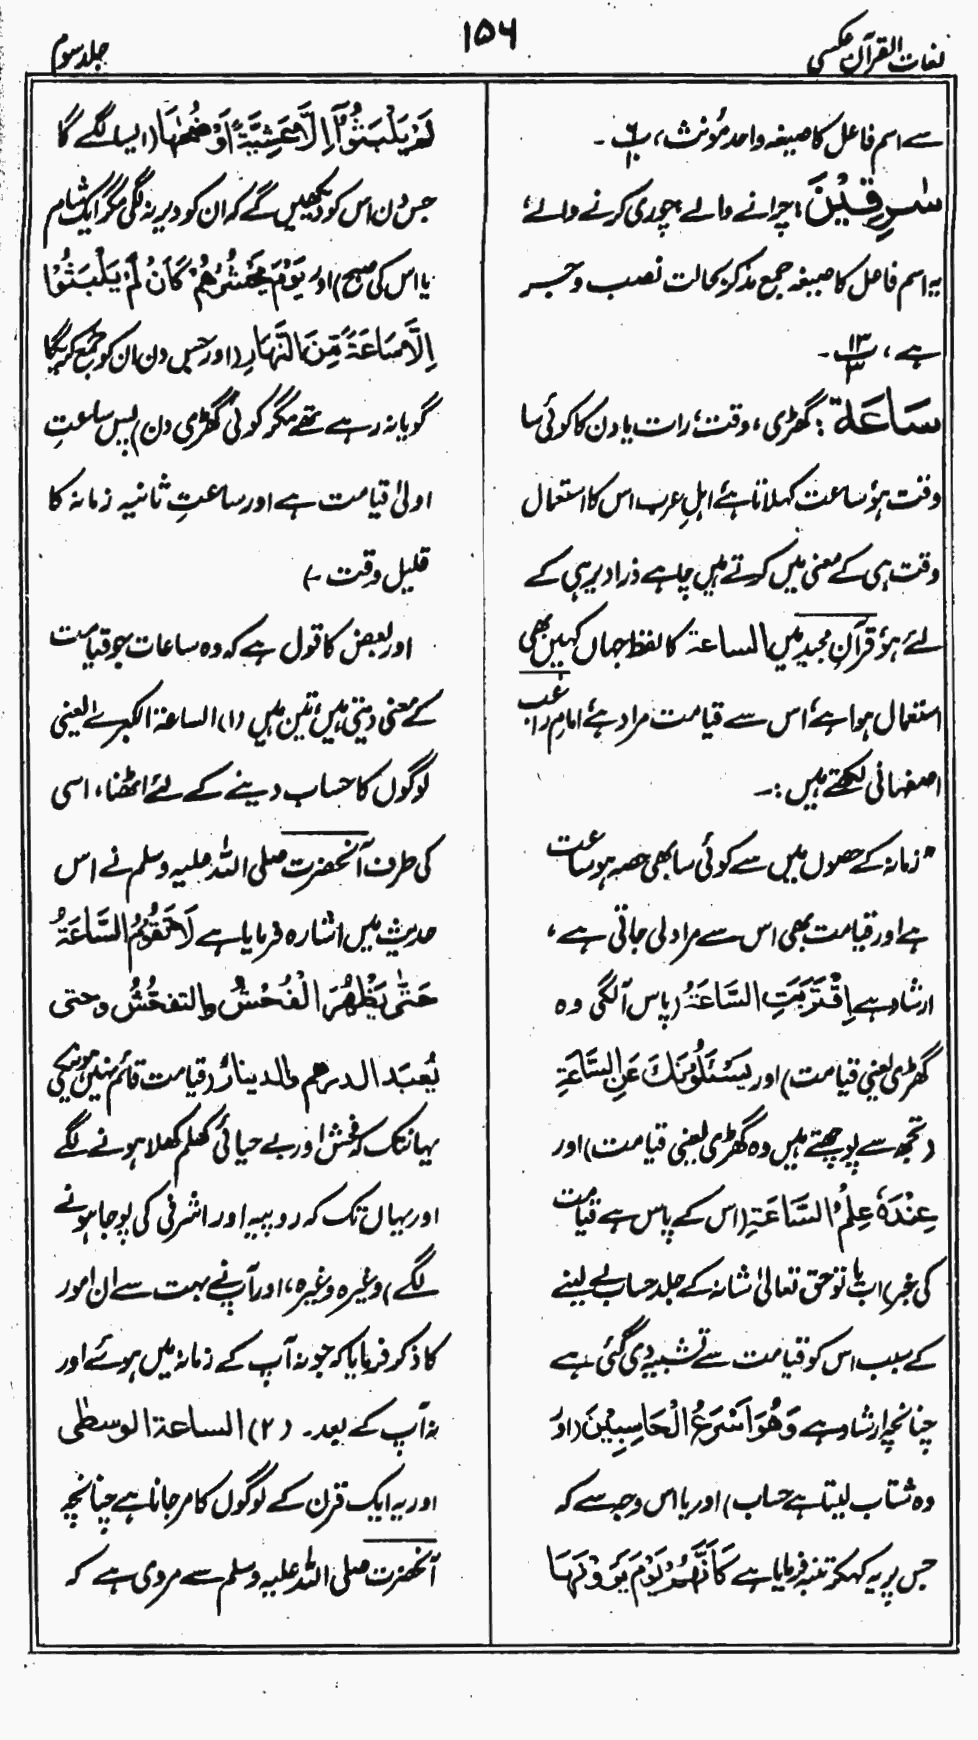 لغات القرآن عکسی
۱۵۶
جلد سوم
سے اسم فاعل کا صیغہ واحد مؤنث،
سٰرِقِیْنَ: چرانے والے، چوری کرنے والے،
یہ اسم فاعل کا صیغہ جمع مذکر بحالت نصب و جر
ہے، ۱۳/۳ ۔
سَاعَة: گھڑی، وقت، رات یا دن کا کوئی سا
وقت ہو ساعت کہلاتا ہے اہلِ عرب اس کا استعمال
وقت ہی کے معنی میں کرتے ہیں چاہے ذرا دیر ہی کے
لئے ہو، قرآن مجید میں الساعۃ کا لفظ جہاں کہیں بھی
استعمال ہوا ہے، اس سے قیامت مراد ہے، امام راغب
اصفہانی لکھتے ہیں:۔
"زمانہ کے حصوں میں سے کوئی سا بھی حصہ ہو ساعت
ہے اور قیامت بھی اس سے مراد لی جاتی ہے،
ارشاد ہے اِقْتَرَبَتِ السَّاعَةُ (پاس آلگی وہ
گھڑی یعنی قیامت) اور یَسْئَلُوْنَكَ عَنِ السَّاعَةِ
(تجھ سے پوچھتے ہیں وہ گھڑی یعنی قیامت) اور
عِنْدَهٗ عِلْمُ السَّاعَةِ (اس کے پاس ہے قیامت
کی خبر) اب یا تو حق تعالیٰ شانہ کے جلد حساب لے لینے
کے سبب اس کو قیامت سے تشبیہ دی گئی ہے
چنانچہ ارشاد ہے وَهُوَ اَسْرَعُ الْحَاسِبِیْنَ (اور
وہ شتاب لیتا ہے حساب) اور یا اس وجہ سے کہ
جس پر یہ کہکر تنبیہ فرمایا ہے كَاَنَّهُمْ یَوْمَ یَرَوْنَهَا
لَمْ یَلْبَثُوْٓا اِلَّا عَشِیَّةً اَوْ ضُحٰىهَا (ایسا لگے گا
جس دن اس کو دیکھیں گے کہ ان کو دیر نہ لگی مگر ایک شام
یا اس کی صبح) اور یَوْمَ یَحْشُرُهُمْ كَاَنْ لَّمْ یَلْبَثُوْٓا
اِلَّا سَاعَةً مِّنَ النَّهَارِ (اور جس دن ان کو جمع کریگا
گویا نہ رہے تھے مگر کوئی گھڑی دن) پس ساعتِ
اولیٰ قیامت ہے اور ساعتِ ثانیہ زمانہ کا
قلیل وقت۔)
اور بعض کا قول ہے کہ وہ ساعات جو قیامت
کے معنی دیتی ہیں، تین ہیں (۱) الساعۃ الکبرےٰ یعنی
لوگوں کا حساب دینے کے لئے اٹھنا، اسی
کی طرف آنحضرت صلی اللہ علیہ وسلم نے اس
حدیث میں اشارہ فرمایا ہے لَا تَقُوْمُ السَّاعَةُ
حَتّٰی یَظْهَرَ الْفُحْشُ والتفحُّشُ وحتی
یُعبَدَ الدرهم والدینارُ (قیامت قائم نہیں ہو سکتی
یہانتک کہ فحش اور بے حیائی کھلم کھلا ہونے لگے
اور یہاں تک کہ روپیہ اور اشرفی کی پوجا ہونے
لگے) وغیرہ وغیرہ، اور آپ نے بہت سے ان امور
کا ذکر فرمایا کہ جو نہ آپ کے زمانہ میں ہوئے اور
نہ آپ کے بعد۔ (۲) الساعة الوسطٰی
اور یہ ایک قرن کے لوگوں کا مرجانا ہے چنانچہ
آنحضرت صلی اللہ علیہ وسلم سے مروی ہے کہ